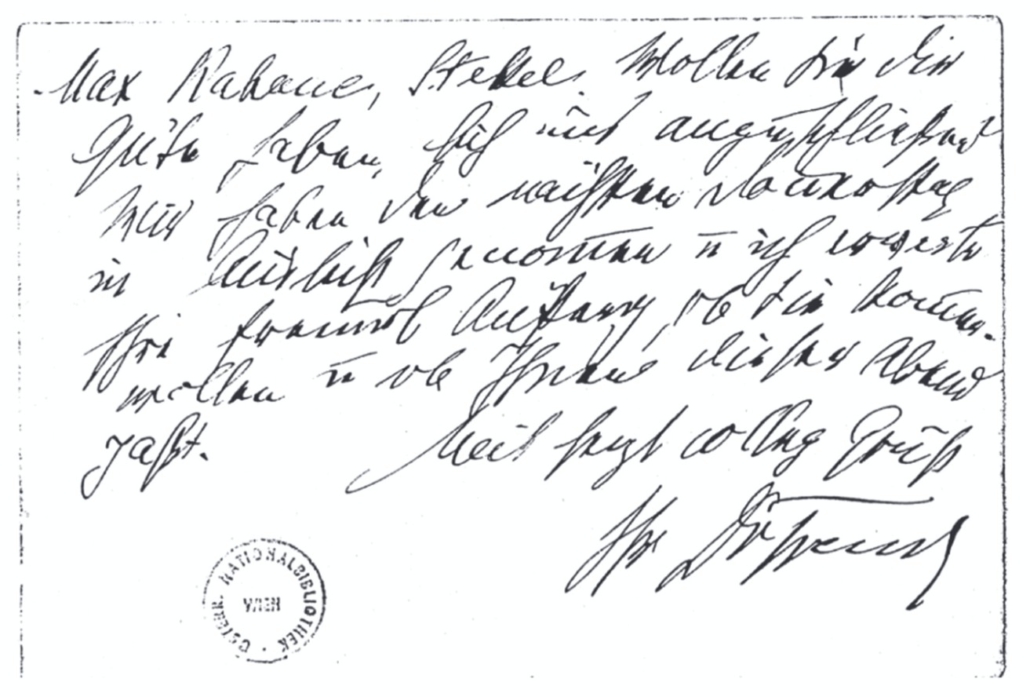 Max Kahane, Stekel. Wollen Sie die
Güte haben, sich uns anzuschließen?
Wir haben den nächsten Donnerstag
in Aussicht genommen u ich erwarte
Ihre freundl Äußerung, ob Sie kommen
wollen u ob Ihnen dieser Abend
paßt. Mit herzl colleg Gruß
Ihr Dr Freud
ÖSTERR. NATIONALBIBLIOTHEK
WIEN